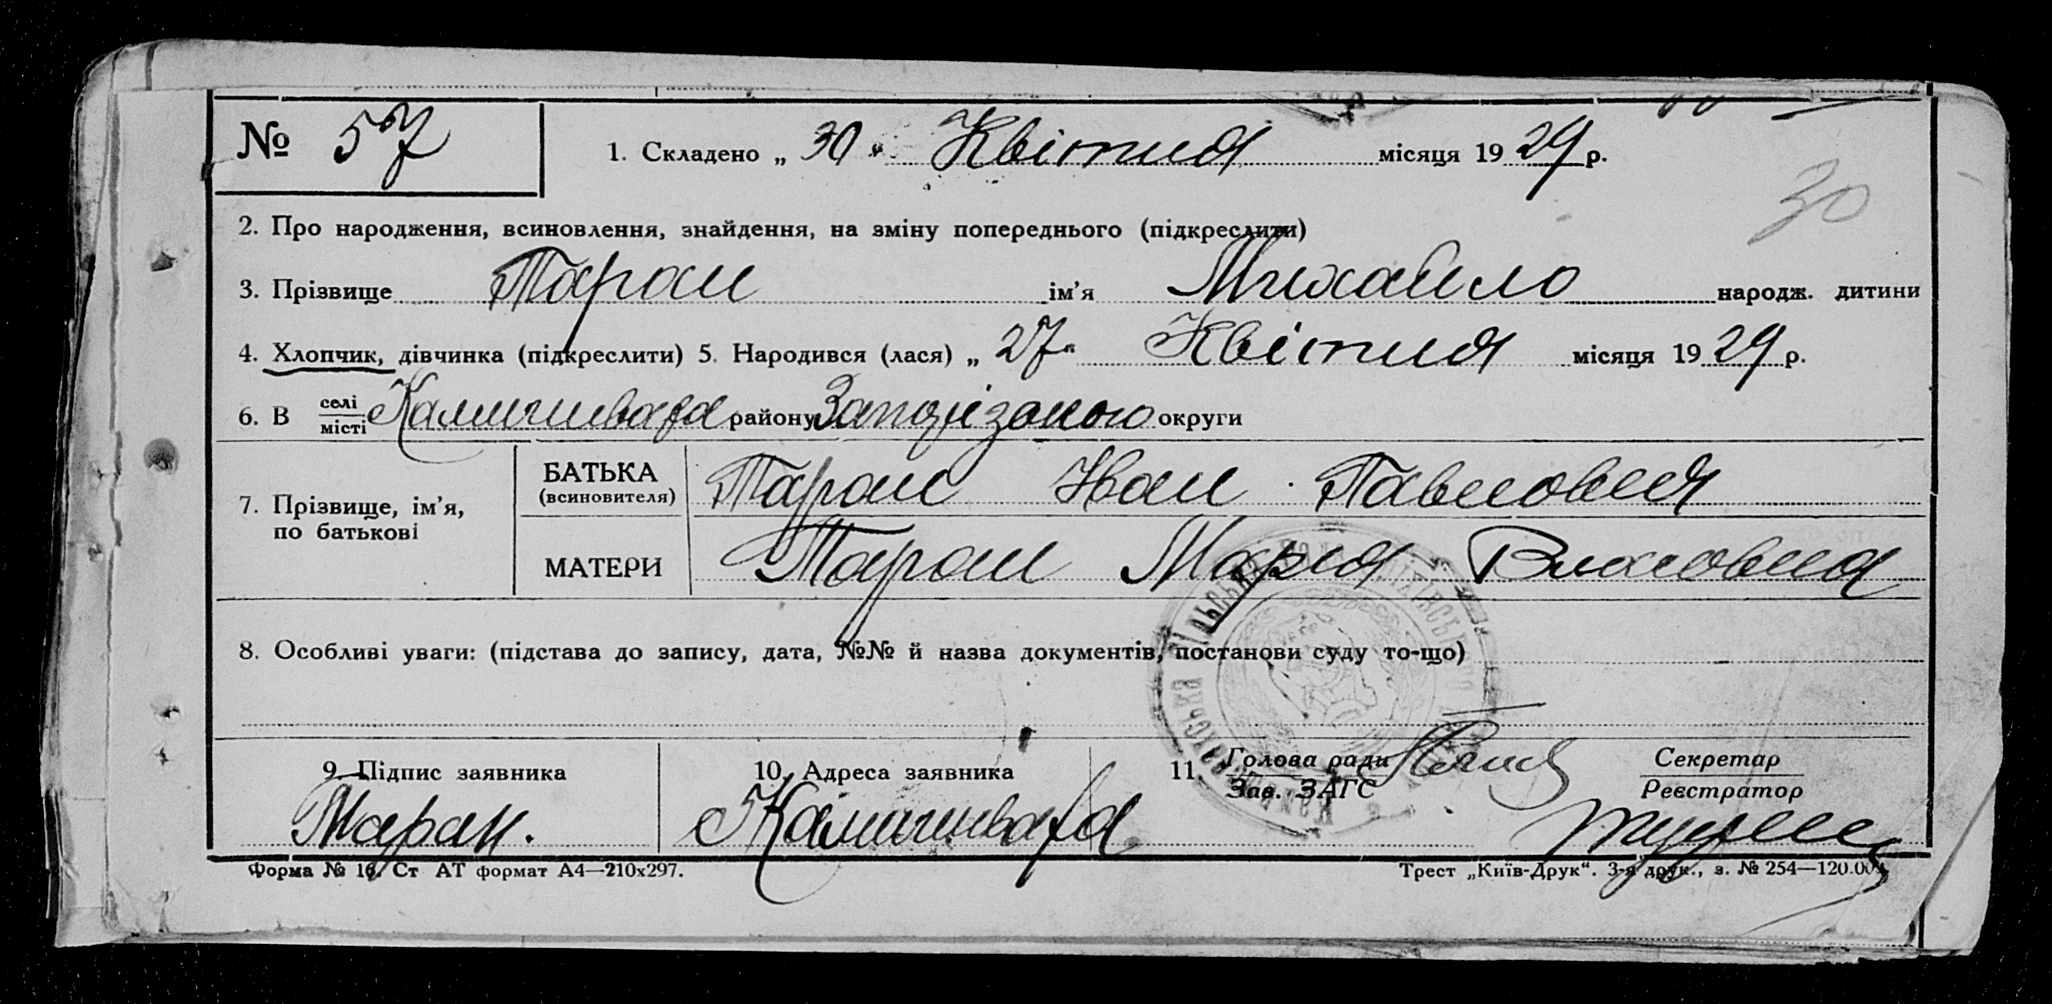 № 57 1. Складено „ 30 " Квітня місяця 1929 р.
30
2. Про народження, всиновлення, знайдення, на зміну попереднього (підкреслити)
3. Прізвище Таран ім'я Михайло народж. дитини
4. Хлопчик, дівчинка (підкреслити) 5. Народився (лася) „ 27 " Квітня місяця 1929 р.
6. В селі місті району Запорізького округи
7. Прізвище, ім'я, по батькові
БАТЬКА (всиновителя) Таран Иван Павлович
МАТЕРИ Таран Мария
8. Особливі уваги: (підстава до запису, дата, №№ й назва документів, постанови суду то-що)
9. Підпис заявника 10. Адреса заявника 11. Голова ради Зав. ЗАГС Секретар Реєстратор
Таран.
Форма № 16. Ст АТ формат А4—210х297. Трест „Київ-Друк“. 3-я друк., з. № 254—120.000